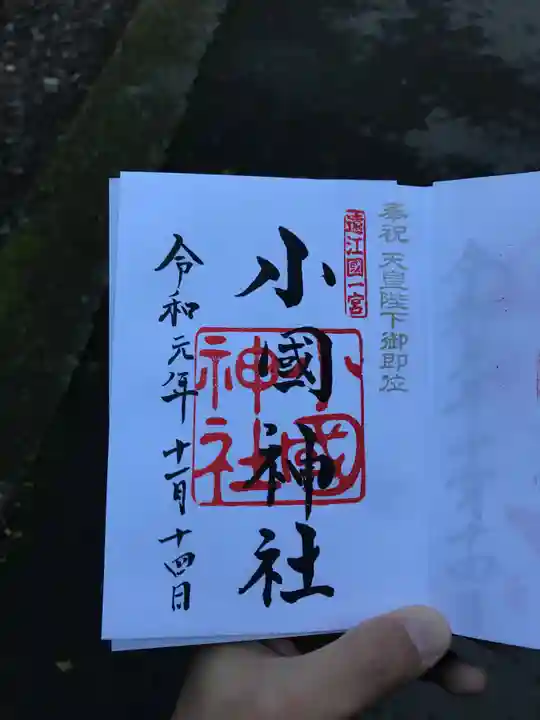 奉祝 天皇陛下御即位
遠江國一宮
小國神社
小國神社
令和元年十一月十四日